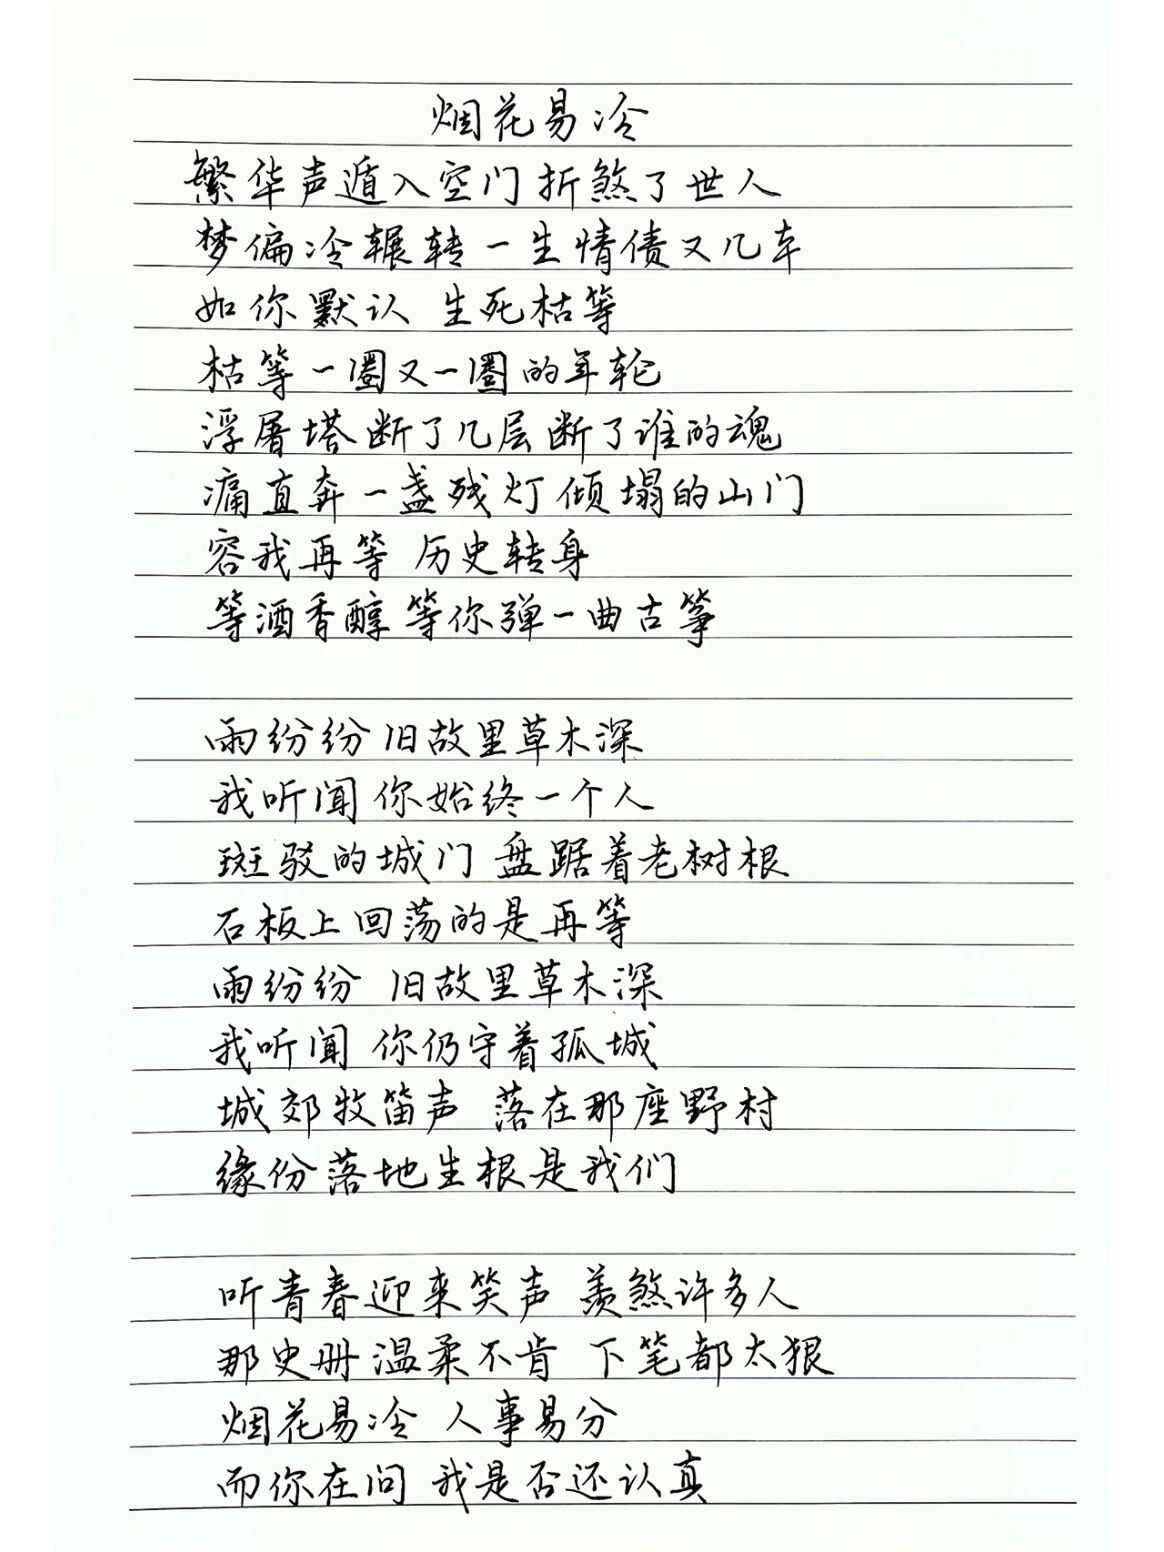 烟花易冷
繁华声遁入空门 折煞了世人
梦偏冷辗转一生情债又几车
如你默认 生死枯等
枯等一圈又一圈的年轮
浮屠塔断了几层断了谁的魂
痛直奔一盏残灯倾塌的山门
容我再等 历史转身
等酒香醇 等你弹一曲古筝
雨纷纷 旧故里草木深
我听闻 你始终一个人
斑驳的城门 盘踞着老树根
石板上回荡的是再等
雨纷纷 旧故里草木深
我听闻 你仍守着孤城
城郊牧笛声 落在那座野村
缘份落地生根是我们
听青春迎来笑声 羡煞许多人
那史册温柔不肯 下笔都太狠
烟花易冷 人事易分
而你在问 我是否还认真